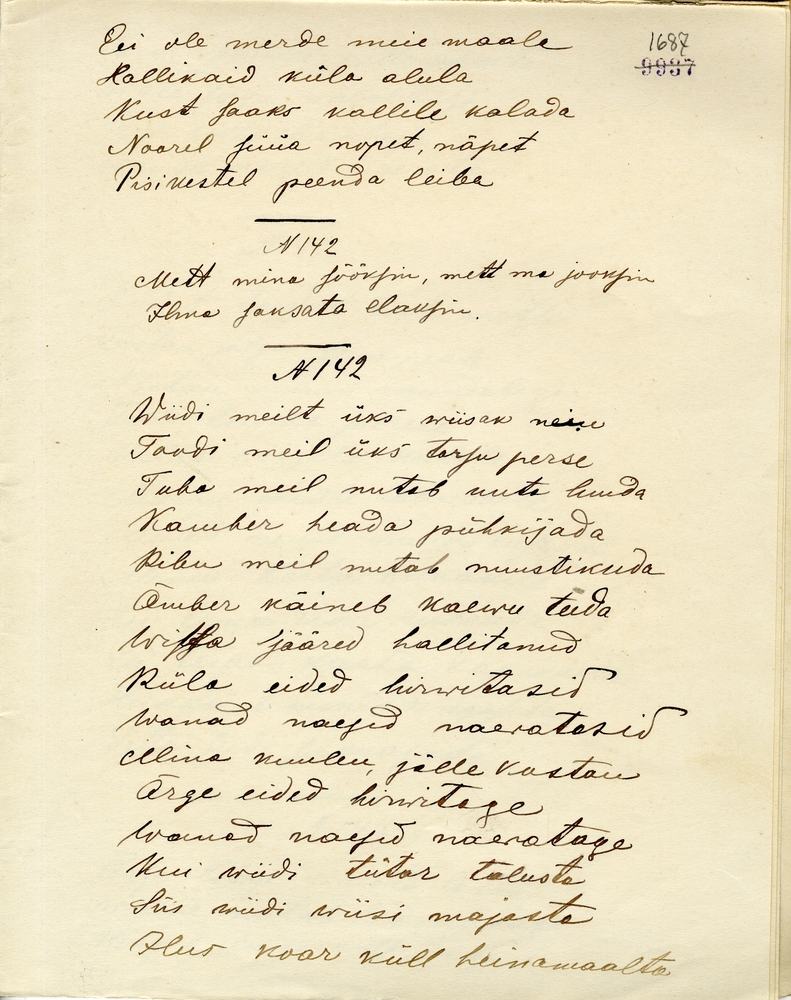 Ei ole merde meie maale
Hallikaid küla alula
Kust saaks kallile kalada
Noorel süüa nopet, näpet
Pisikestel peenda leiba
1687
9937
N 142
Mett mina sööksin, mett ma jooksin
Ilma saksata elaksin.
N 142
Wiidi meilt üks wiisak neiu
Toodi meil üks torsu perse
Tuba meil nutab uuta luuda
Kamber heada pühkijada
Ribu meil nutab nuustikuda
Ämber käineb kaewu teeda
Wissa sääred hallitanud
Küla eided hirwitasid
Wanad naesed naeratasid
Mina kuulen, jälle kostan
Ärge eided hirwitage
Wanad naesed naeratage
Kui wiidi tütar talusta
Siis wiidi wiisi majasta
Ilus koar küll heinamaalta